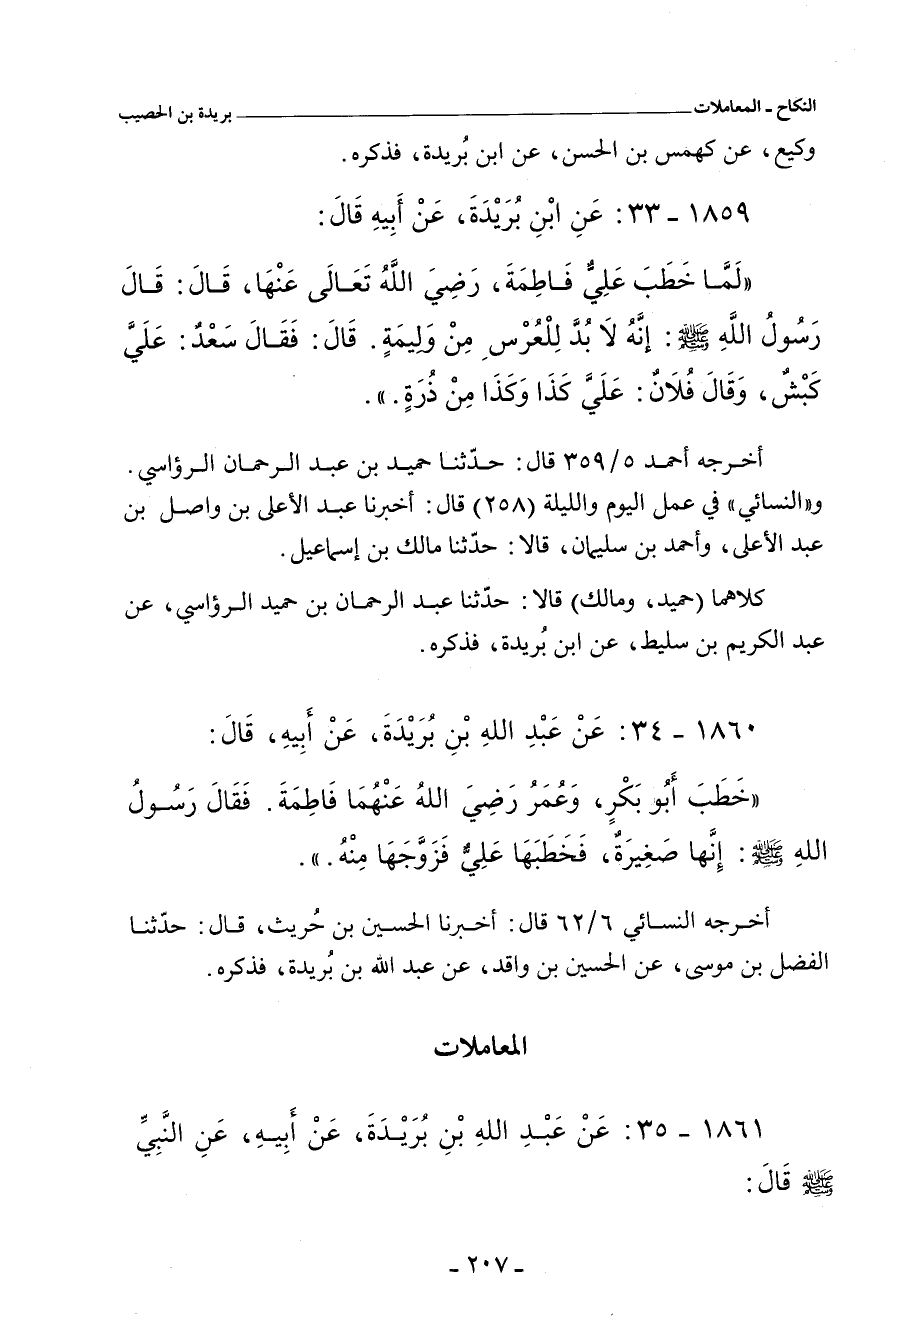 النكاح - المعاملات ـــــــــــــــــــــــــــــــــــــــــــــــــ بريدة بن الحصيب
وكيع، عن كهمس بن الحسن، عن ابن بُريدة، فذكره.
١٨٥٩ - ٣٣: عَنِ ابْنِ بُرَيْدَةَ، عَنْ أَبِيهِ قَالَ:
«لَمَّا خَطَبَ عَلِيٌّ فَاطِمَةَ، رَضِيَ اللَّهُ تَعَالَى عَنْهَا، قَالَ: قَالَ
رَسُولُ اللَّهِ ﷺ: إِنَّهُ لَا بُدَّ لِلْعُرْسِ مِنْ وَلِيمَةٍ. قَالَ: فَقَالَ سَعْدٌ: عَلَيَّ
كَبْشٌ، وَقَالَ فُلَانٌ: عَلَيَّ كَذَا وَكَذَا مِنْ ذُرَةٍ.».
أخرجه أحمد ٣٥٩/٥ قال: حدّثنا حميد بن عبد الرحمان الرؤاسي.
و«النسائي» في عمل اليوم والليلة (٢٥٨) قال: أخبرنا عبد الأعلى بن واصل بن
عبد الأعلى، وأحمد بن سليمان، قالا: حدّثنا مالك بن إسماعيل.
كلاهما (حميد، ومالك) قالا: حدّثنا عبد الرحمان بن حميد الرؤاسي، عن
عبد الكريم بن سليط، عن ابن بُريدة، فذكره.
١٨٦٠ - ٣٤: عَنْ عَبْدِ اللهِ بْنِ بُرَيْدَةَ، عَنْ أَبِيهِ، قَالَ:
«خَطَبَ أَبُو بَكْرٍ، وَعُمَرُ رَضِيَ اللهُ عَنْهُمَا فَاطِمَةَ. فَقَالَ رَسُولُ
اللهِ ﷺ: إِنَّها صَغِيرَةٌ، فَخَطَبَهَا عَلِيٌّ فَزَوَّجَهَا مِنْهُ.».
أخرجه النسائي ٦٢/٦ قال: أخبرنا الحسين بن حُريث، قال: حدّثنا
الفضل بن موسى، عن الحسين بن واقد، عن عبد الله بن بُريدة، فذكره.
المعاملات
١٨٦١ - ٣٥: عَنْ عَبْدِ اللهِ بْنِ بُرَيْدَةَ، عَنْ أَبِيهِ، عَنِ النَّبِيِّ
ﷺ قَالَ:
- ٢٠٧ -